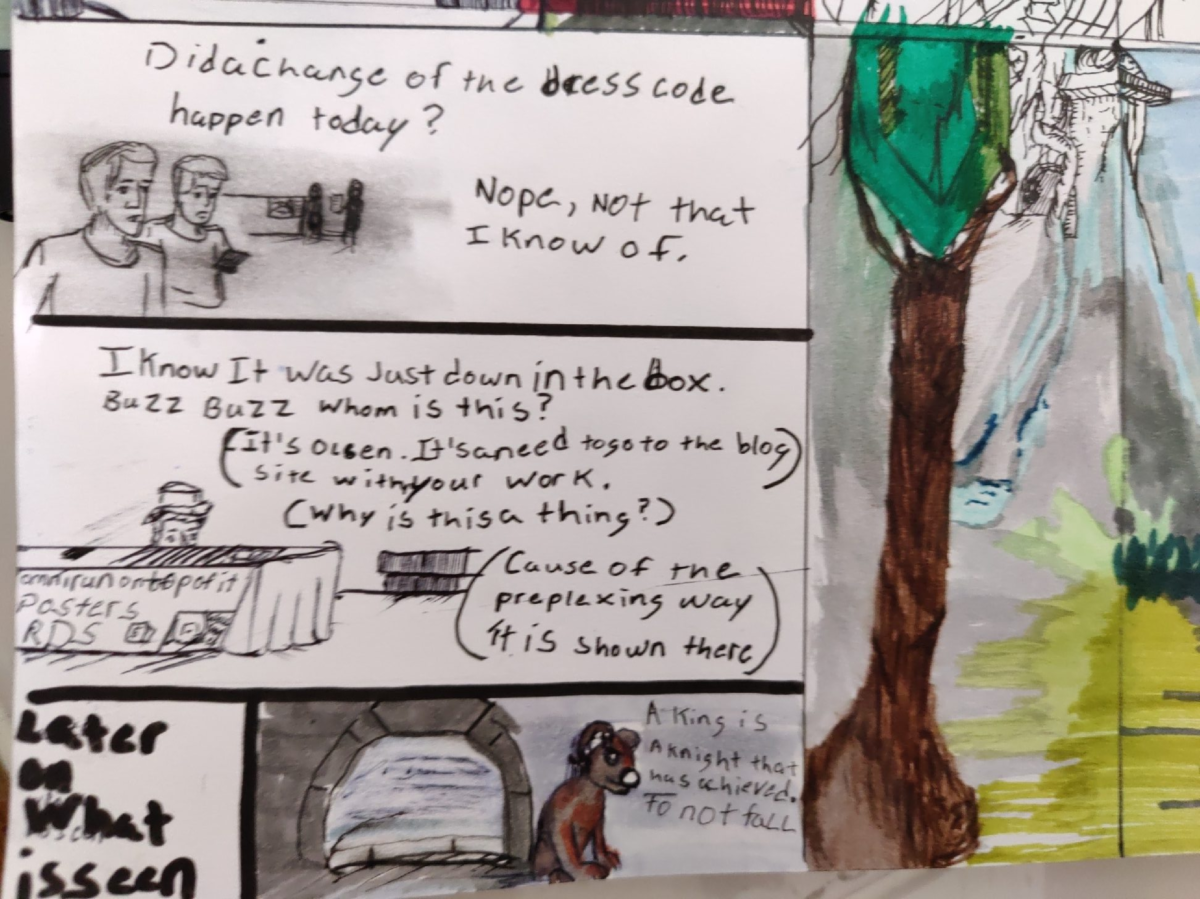 Did a change of the dress code
happen today?
Nope, Not that
I Know of.
I Know It was Just down in the box.
Buzz Buzz whom is this?
(It's Olsen. It's a need to go to the blog)
site with your work.
(Why is this a thing?)
(Cause of the
preplexing way
it is shown there)
posters
RDS
Later
on
What
is seen
A King is
A Knight that
has achieved.
To not fall